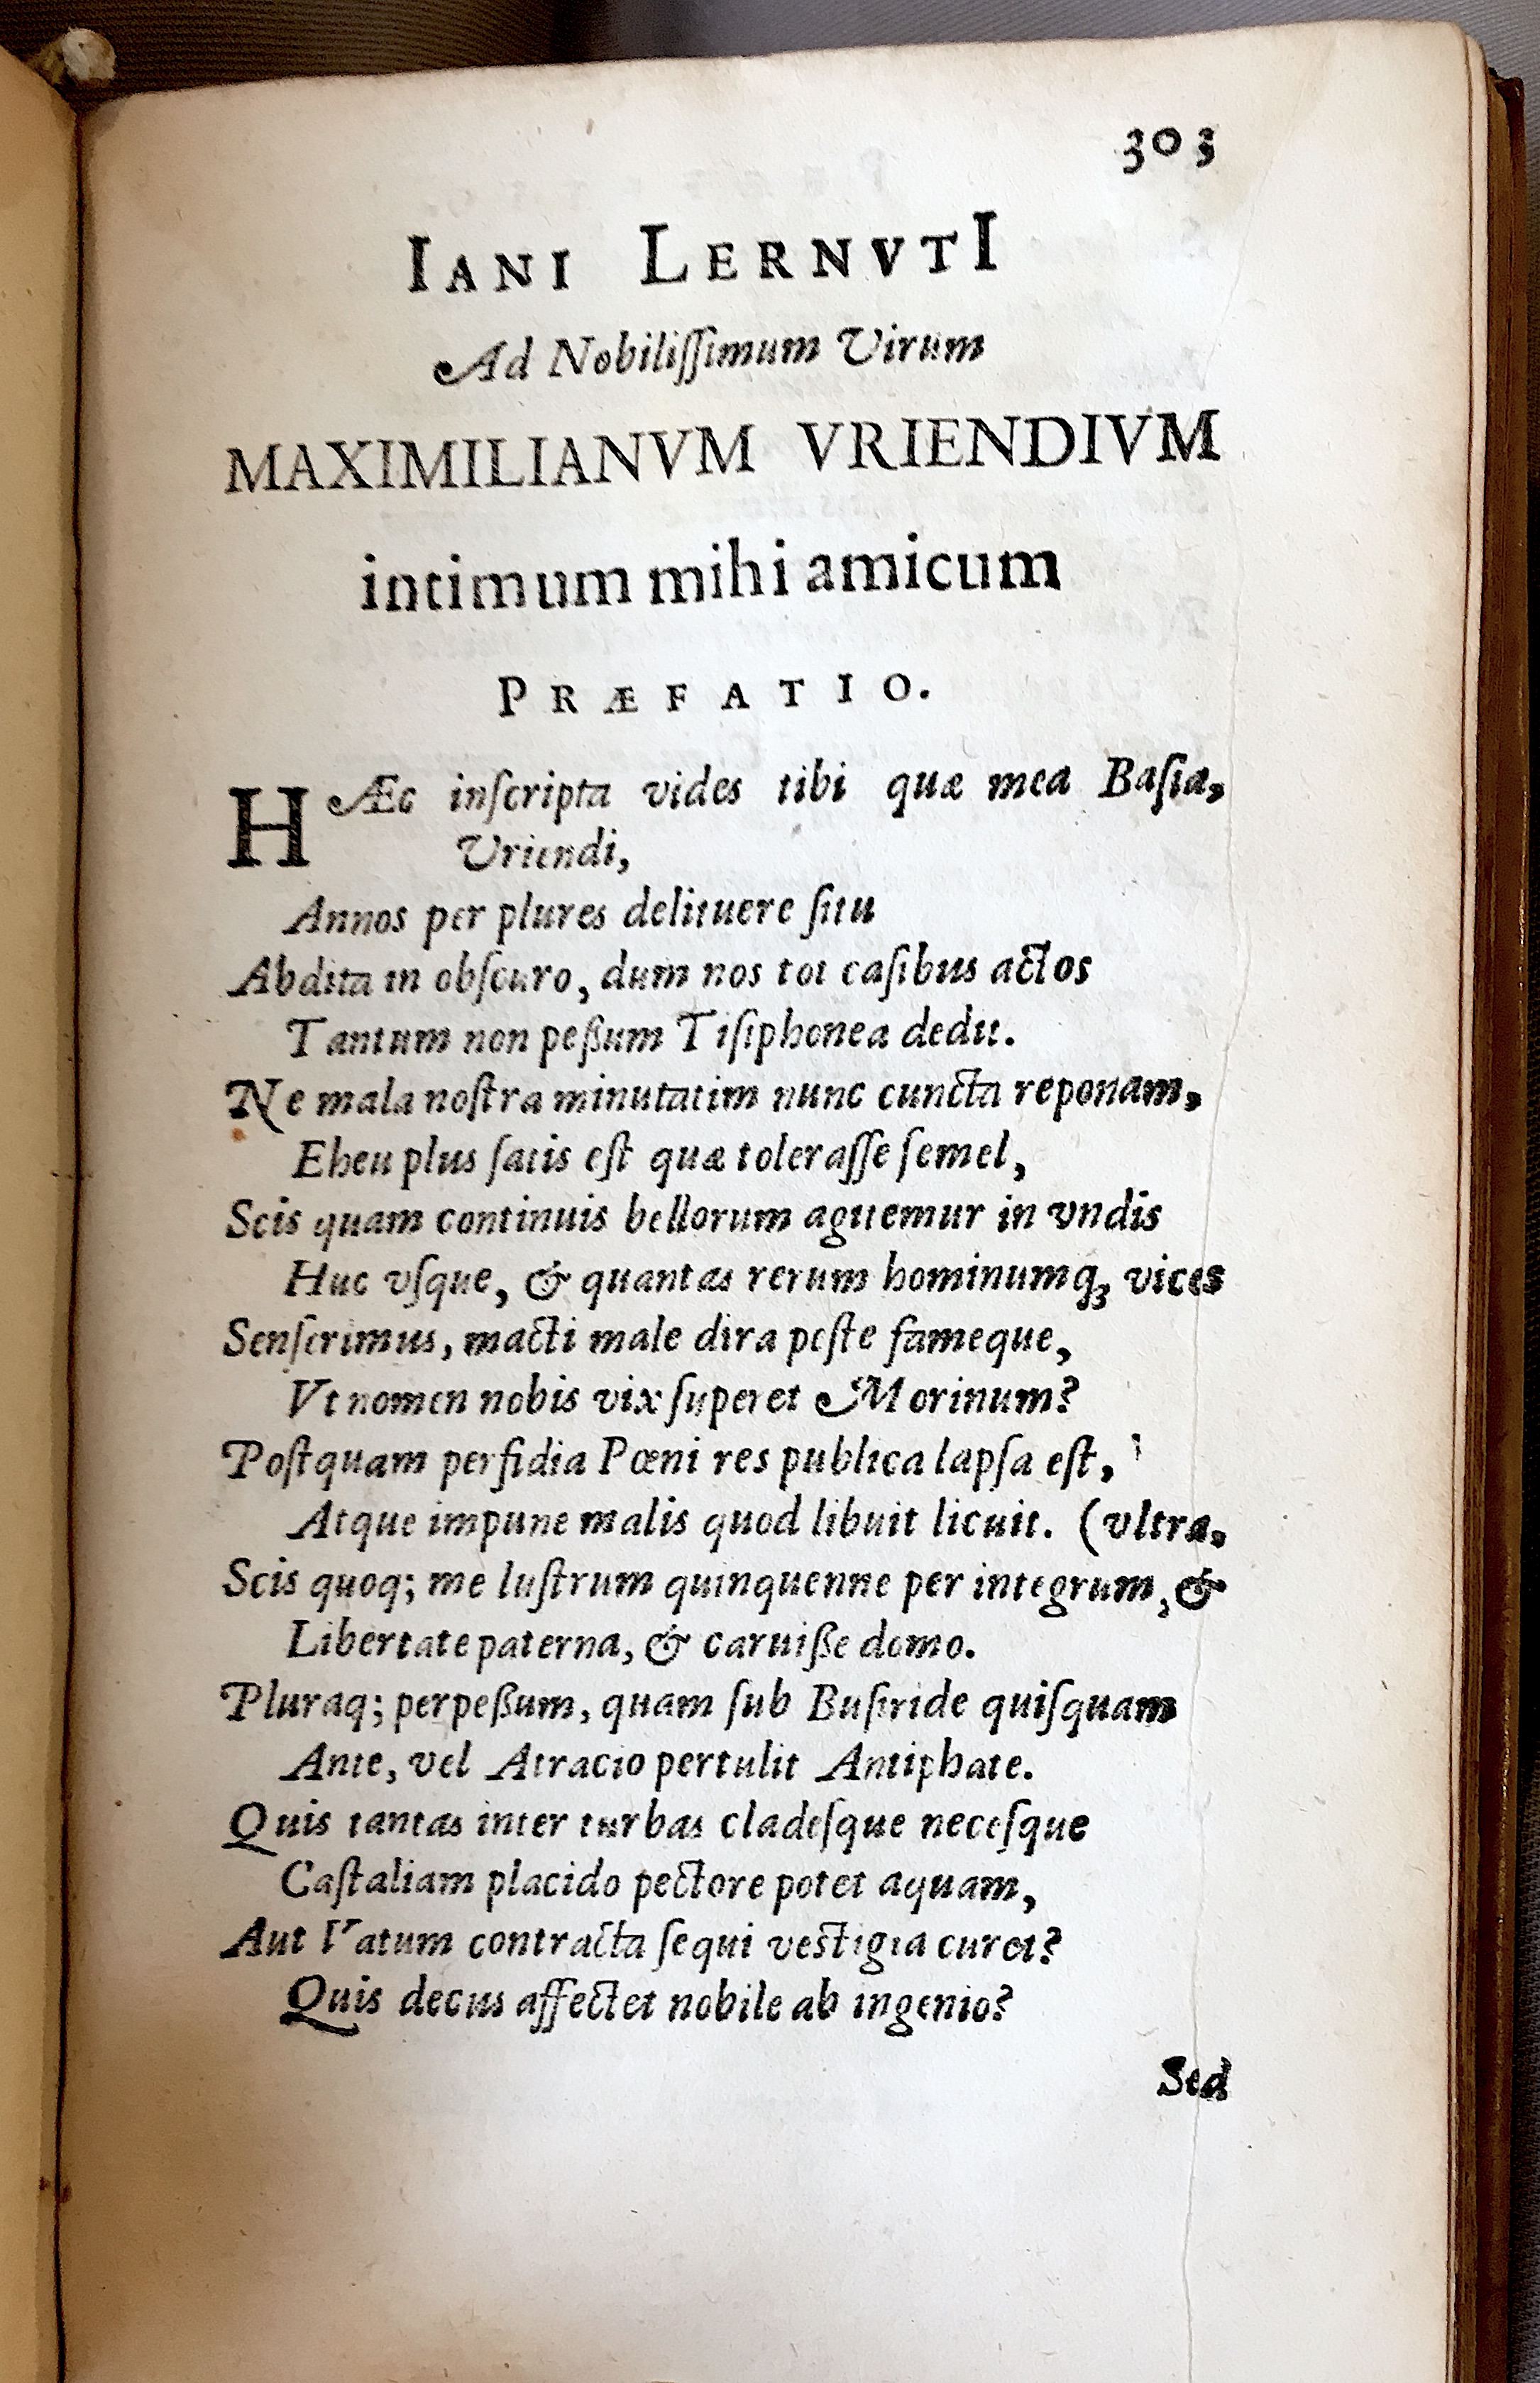 303
IANI LERNVTI
Ad Nobiliſſimum Virum
MAXIMILIANVM VRIENDIVM
intimum mihi amicum
PRÆFATIO.
HÆc inſcripta vides tibi quæ mea Baſia,
Vriendi,
Annos per plures delituere ſitu
Abdita in obſcuro, dum nos tot caſibus actos
Tantum non peßum Tiſiphonea dedit.
Ne mala noſtra minutatim nunc cuncta reponam,
Eheu plus ſatis eſt quæ toleraſſe ſemel,
Scis quam continuis bellorum agitemur in vndis
Huc vſque, & quantas rerum hominumq; vices
Senſerimus, macti male dira peſte fameque,
Vt nomen nobis vix ſuperet Morinum?
Poſtquam perfidia Pœni res publica lapſa eſt,
Atque impune malis quod libuit licuit. (vltra,
Scis quoq; me luſtrum quinquenne per integrum, &
Libertate paterna, & caruiße domo.
Pluraq; perpeßum, quam ſub Buſiride quiſquam
Ante, vel Atracio pertulit Antiphate.
Quis tantas inter turbas cladeſque neceſque
Caſtaliam placido pectore potet aquam,
Aut Vatum contracta ſequi veſtigia curet?
Quis decus affectet nobile ab ingenio?
Sed